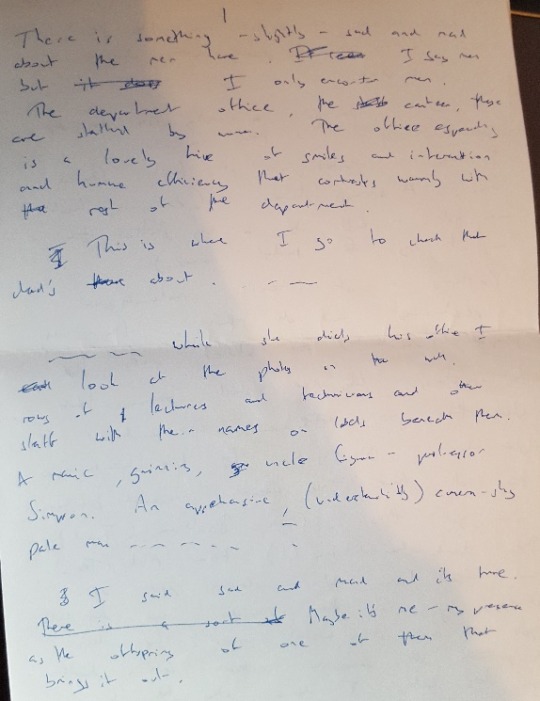 1
There is something - slightly - sad and mad
about the men here. I say men
but I only encounter men.
The department office, the canteen, these
are staffed by women. The office especially
is a lovely hive of smiles and interaction
and human efficiency that contrasts warmly with
the rest of the department.
I This is where I go to check that
dad's about. - - —
while she dials his office I
look at the photos on the wall.
rows of lecturers and technicians and other
staff with their names on labels beneath them.
A manic, grinning, uncle - professor
Simpson. An apprehensive, (understandably) camera-shy
pale man - - - - - -
I said sad and mad and its true.
There is a sort Maybe it's me - my presence
as the offspring of one of them that
brings it out.